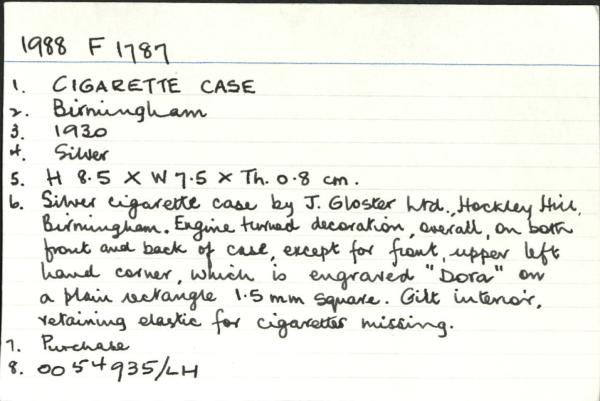 1988 F 1787
1. CIGARETTE CASE
2. Birmingham
3. 1930
4. Silver
5. H 8.5 X W 7.5 X Th. 0.8 cm.
6. Silver cigarette case by J. Gloster Ltd., Hockley Hill,
Birmingham. Engine turned decoration, overall, on both
front and back of case, except for front, upper left
hand corner, which is engraved "Dora" on
a plain rectangle 1.5 mm square. Gilt interior,
retaining elastic for cigarettes missing.
7. Purchase
8. 0054935/LH